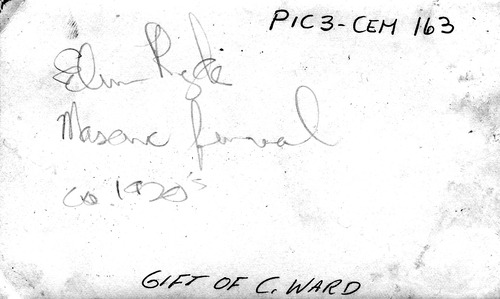 PIC3-CEM 163
Elm
Masonic funeral
ca 1920's
GIFT OF C. WARD